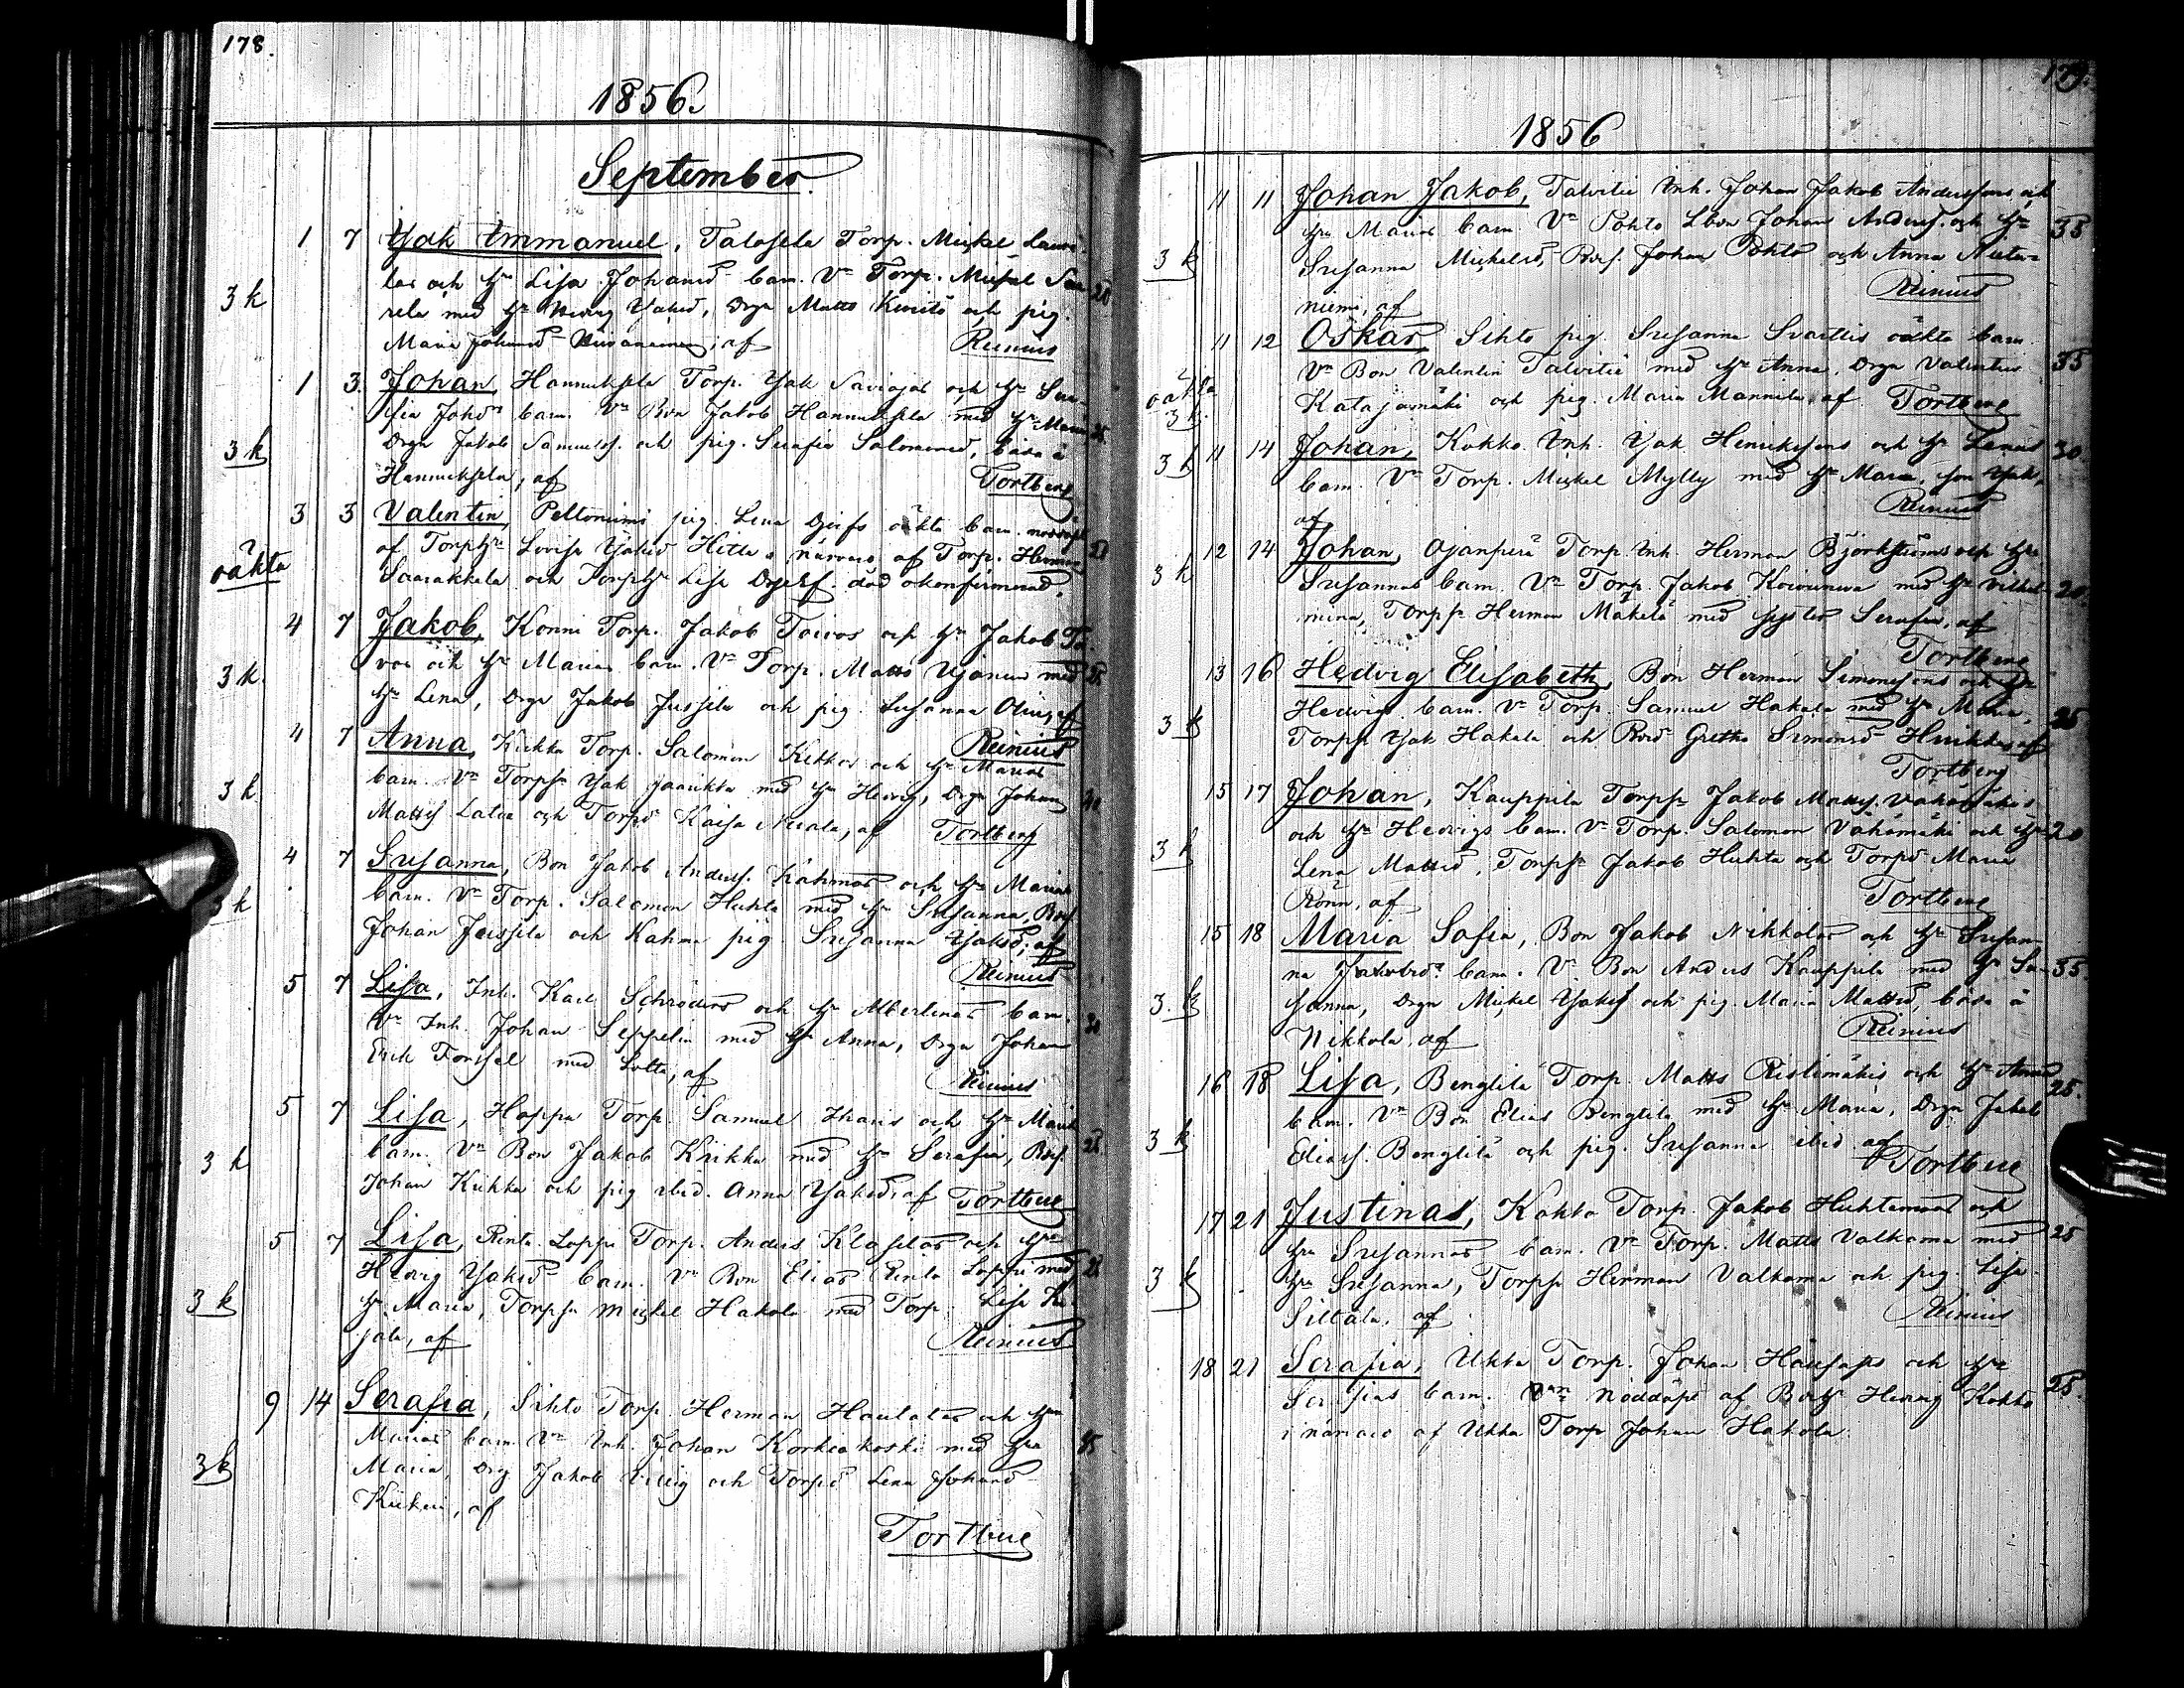 178.
1856.
September.
1 7 Isak Immanuel, Talosela Torp. Mickel Lauri-
las och H. Lisa Johansd. barn. Vn Torp. Mickel Saa- 28
3 k rela med H. Hedvig Isaksd, Drgn Matts Kivistö och pig.
Maria Johansd, af Reinius
1 3. Johan, Hannuksela Torp. Isak Saviojas och H. Sera-
fia Johsdr barn. Vn Bon Jakob Hannuksela med H. Maria
3 k Drgn Jakob Samuelss. och pig. Serafia Salomonsd, båda å
Hannuksela, af Tortberg
3 3 Valentin, Peltoniemi pig. Lena oäkta barn. nöddöpt
oäkta af Torph Lovisa Isaksd Hitta i närvaro af Torp. Herman
Saarakkala och Torph Lisa död okonfirmerad.
4 7 Jakob, Konni Torp. Jakob Toivos och H. Jakob To-
vos och H. Marias barn. Vn Torp. Matts Ojanen med 25
3 k. H. Lena, Drgn Jakob Jussila och pig. Susanna af
Reinius
4 7 Anna, Kiikka Torp. Salomon Kiikkas och H. Marias
3 k barn. Vn Torps Isak med H. Hedvig, Drgn Johan
Mattss. Latva och Torpd Kaisa, af Tortberg
4 7 Susanna, Bon Jakob Anderss. Kahmas och H. Marias
3 k barn. Vn Torp. Salomon Huhta med H. Susanna, Bss
Johan Jussila och Kahma pig. Susanna Isaksd, af
Reinius
5 7 Lisa, Inh. Karl Schröders och H. Albertinas barn.
Vn Inh. Johan Seppelin med H. Anna, Drgn Johan 30
Erik Forssel med Lotta, af Reinius
5 7 Lisa, Hoppa Torp. Samuel och H. Marias
3 k barn. Vn Bon Jakob Kiikka med H. Serafia, Bss.
Johan Kiikka och pig ibid. Anna Isaksd. af Tortberg
5 7 Lisa, Rinta Loppi Torp. Anders Klasilas och H.
Hedvig Isaksd barn. Vn Bon Elias Rinta Loppi med
3 k H. Maria, Torps Mickel Hakola med Torp. Lisa
jala, af Reinius
9 14 Serafia, Sihto Torp. Herman Hautalas och H.
Marias barn. Vn Inh. Johan Korkiakoski med Hu
3 k Maria, Drg Jakob Villig och Torpd Lena Johansd
af
Tortberg
179.
1856
11 11 Johan Jakob, Talvitie Inh. Johan Jakob Anderssons och
Hu Marias barn. Vn Pohto Lbon Johan Anderss. och H. 35
3 k Susanna Mickelsd, Bss. Johan Pohto och Anna Nieta-
niemi, af Reinius
11 12 Oskar, Sihto pig. Susanna Svartlis oäkta barn.
oäkta Vn Bon Valentin Talvitie med H. Anna, Drgn Valentin 35
3 k. Katajamäki och pig. Maria Mannila, af Tortberg
3 k 11 14 Johan, Kokko Inh. Isak Henrikssons och H. Lenas 30.
barn. Vn Torp. Mickel Mylly med H. Maria, son Isak,
af Reinius
12 14 Johan, Ojanperä Torp. Inh. Herman Björkströms och H.
3 k Susannas barn. Vn Torp. Jakob Koivuneva med H. Vilhel- 20.
mina, Torps Herman Mäkelä med syster Serafia, af
Tortberg
13 16 Hedvig Elisabeth, Bon Herman Simonssons och H.
Hedvigs barn. Vn Torp. Samuel Hakala med H. Maria, 25
3 k Torps Isak Hakala och Bod Gretha Simonsd af
Tortberg
15 17 Johan, Kauppila Torps Jakob Mattss. Vähämäkis
och H. Hedvigs barn. Vn Torp. Salomon Vähämäki och H. 20
3 k Lena Mattsd, Torps Jakob Huhta och Torpd Maria
Rönn, af Tortberg
15 18 Maria Sofia, Bon Jakob Nikkolas och H. Susan-
na Jakobsd. barn. Vn Bon Anders Kauppila med H. Su- 35
3. k sanna, Drgn Mickel Isakss och pig. Maria Mattsd, båda å
Nikkola, af Reinius
16 18 Lisa, Benglilä Torp. Matts Ristimäkis och H. Annas 25.
barn. Vn Bon Elias Benglilä med H. Maria, Drgn Jakob
3 k Eliass. Benglilä och pig. Susanna ibid af
Tortberg
17 21 Justinas, Kokko Torp. Jakob Huhtamas och
Hu Susannas barn. Vn Torp. Matts Valkama med 25
3 k Hu Susanna, Torps Herman Valkama och pig. Lisa
Siltala, af Reinius
18 21 Serafia, Ukka Torp. Johan och H.
Serafias barn. nöddöpt af Hedvig Kokko 25.
i närvaro af Ukka Torp Johan Hakola.